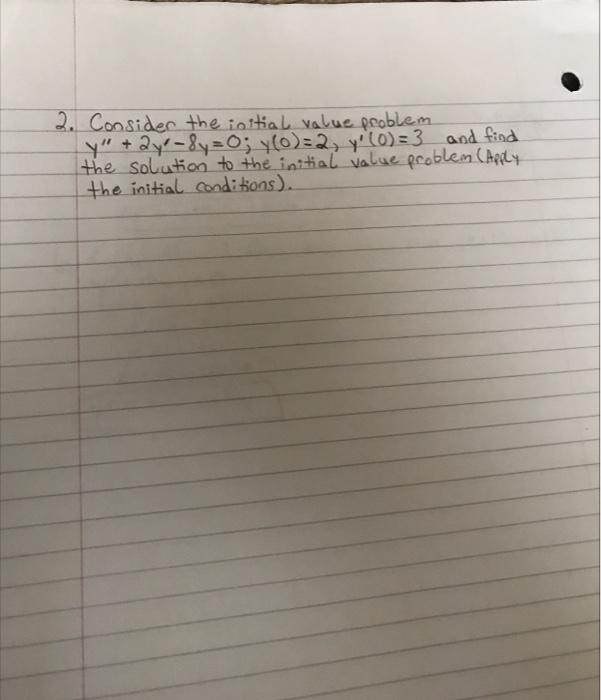 2. Consider the initial value problem
y'' + 2y' - 8y = 0; y(0) = 2, y'(0) = 3 and find
the solution to the initial value problem (Apply
the initial conditions).